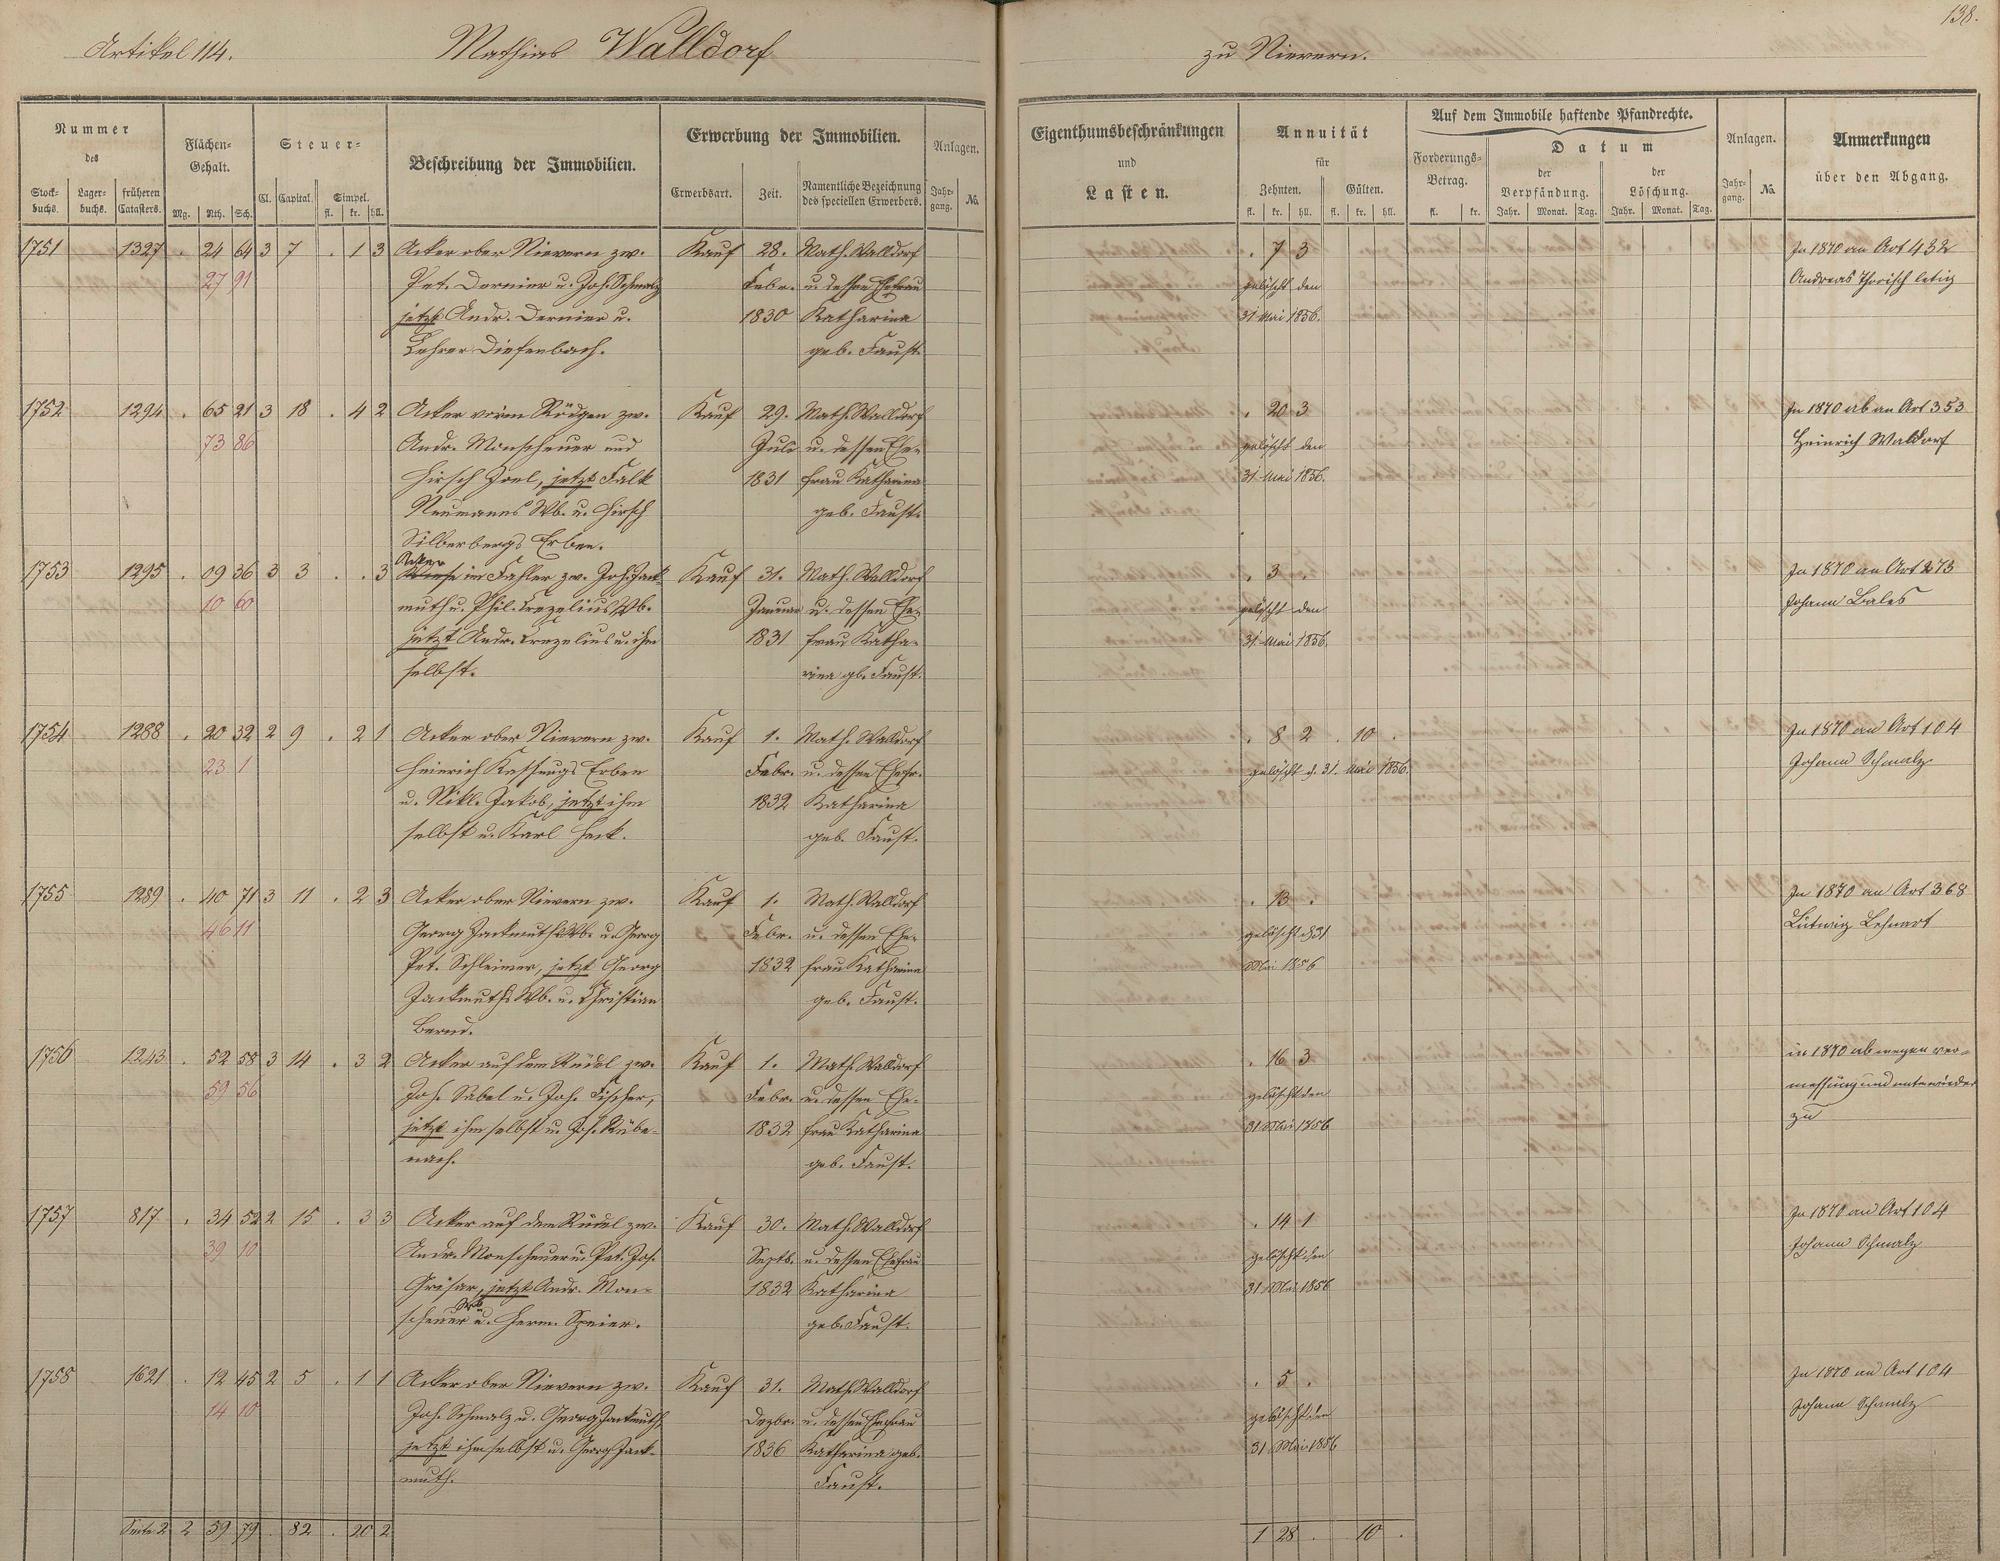 138.
Artikel 114. Mathias Walldorf zu Nievern.
Nummer des
Stockbuchs. Lagerbuchs. früheren Catasters.
Flächen-Gehalt.
Mg. Rth. Sch.
Steuer-
Cl. Capital. Simpel.
fl. kr. hll.
Beschreibung der Immobilien.
Erwerbung der Immobilien.
Erwerbsart. Zeit. Namentliche Bezeichnung des speciellen Erwerbers.
Anlagen.
Jahrgang. No.
Eigenthumsbeschränkungen und Lasten.
Annuität für
Zehnten. Gülten.
fl. kr. hll. fl. kr. hll.
Auf dem Immobile haftende Pfandrechte.
Forderungs-Betrag.
fl. kr.
Datum
der Verpfändung. der Löschung.
Jahr. Monat. Tag. Jahr. Monat. Tag.
Anlagen.
Jahrgang. No.
Anmerkungen über den Abgang.
1751 1327 . 24 64 3 7 . 1 3 Acker ober Nievern zw. Kauf 28. Math. Walldorf . 7 3 In 1870 an Art 432
27 91 Pet. Dernier u. Joh. Schmalz Febr. u. dessen Ehefrau gelöscht den Andreas
jetzt Andr. Dernier u. 1830 Katharina 31 Mai 1856.
Lehrer Diefenbach. geb. Faust.
1752 1294 . 65 21 3 18 . 4 2 Acker vorm Rödgen zw. Kauf 29. Math. Walldorf . 20 3 In 1870 ab an Art 353
73 86 Andr. Monscheuer und Juli u. dessen Ehe- gelöscht den Heinrich Waldorf
Hirsch Joel, jetzt Falk 1831 frau Katharina 31 Mai 1856.
Neumanns Wb. u. Hirsch geb. Faust.
Silberbergs Erben.
Acker
1753 1295 . 09 36 3 3 . . 3 Wiese im Fahler zw. Joh. Zack- Kauf 31. Math. Walldorf . 3 . In 1870 an Art 273
10 60 muth u. Phil. Crezelius Wb. Januar u. dessen Ehe- gelöscht den Johann Bales
jetzt Andr. Crezelius u. ihm 1831 frau Katha- 31 Mai 1856.
selbst. rina gb. Faust.
1754 1288 . 20 32 2 9 . 2 1 Acker ober Nievern zw. Kauf 1. Math. Walldorf . 8 2 . 10 . In 1870 an Art 104
23 1 Heinrich Erben Febr. u. dessen Ehefr. gelöscht d. 31. Mai 1856. Johann Schmalz
u. Nikl. Jakob, jetzt ihm 1832 Katharina
selbst u. Karl Heck. geb. Faust.
1755 1289 . 40 71 3 11 . 2 3 Acker ober Nievern zw. Kauf 1. Math. Walldorf . 13 . In 1870 an Art 368
46 11 Georg Zackmuths Wb. u. Georg Febr. u. dessen Ehe- gelöscht d. 31 Ludwig Lehnert
Pet. Schleimer, jetzt Georg 1832 frau Katharina Mai 1856
Zackmuths Wb. u. Christian geb. Faust.
Bernd.
1756 1243 . 52 58 3 14 . 3 2 Acker auf dem Rüdel zw. Kauf 1. Math. Walldorf . 16 3 in 1870 ab wegen ver-
59 56 Joh. Sabel u. Joh. Fischer, Febr. u. dessen Ehe- gelöscht den messung und wieder
jetzt ihm selbst u. Joh. Rübe- 1832 frau Katharina 31 Mai 1856 zu
nach. geb. Faust.
1757 817 . 34 52 2 15 . 3 3 Acker auf dem Rüdel zw. Kauf 30. Math. Walldorf . 14 1 In 1870 an Art 104
39 10 Andr. Monscheuer u. Pet. Joh. Septb. u. dessen Ehefrau gelöscht den Johann Schmalz
Grisar, jetzt Andr. Mon- 1832 Katharina 31 Mai 1856
Wb.
scheuer u. Herm. Speier. geb. Faust.
1758 1621 . 12 45 2 5 . 1 1 Acker ober Nievern zw. Kauf 31. Math. Walldorf . 5 . In 1870 an Art 104
14 10 Joh. Schmalz u. Georg Zackmuth, Dezbr. u. dessen Ehefrau gelöscht den Johann Schmalz
jetzt ihm selbst u. Georg Zack- 1836 Katharina geb. 31 Mai 1856
muth. Faust.
Seite 2 2 59 79 . 82 . 20 2 1 28 . 10 .